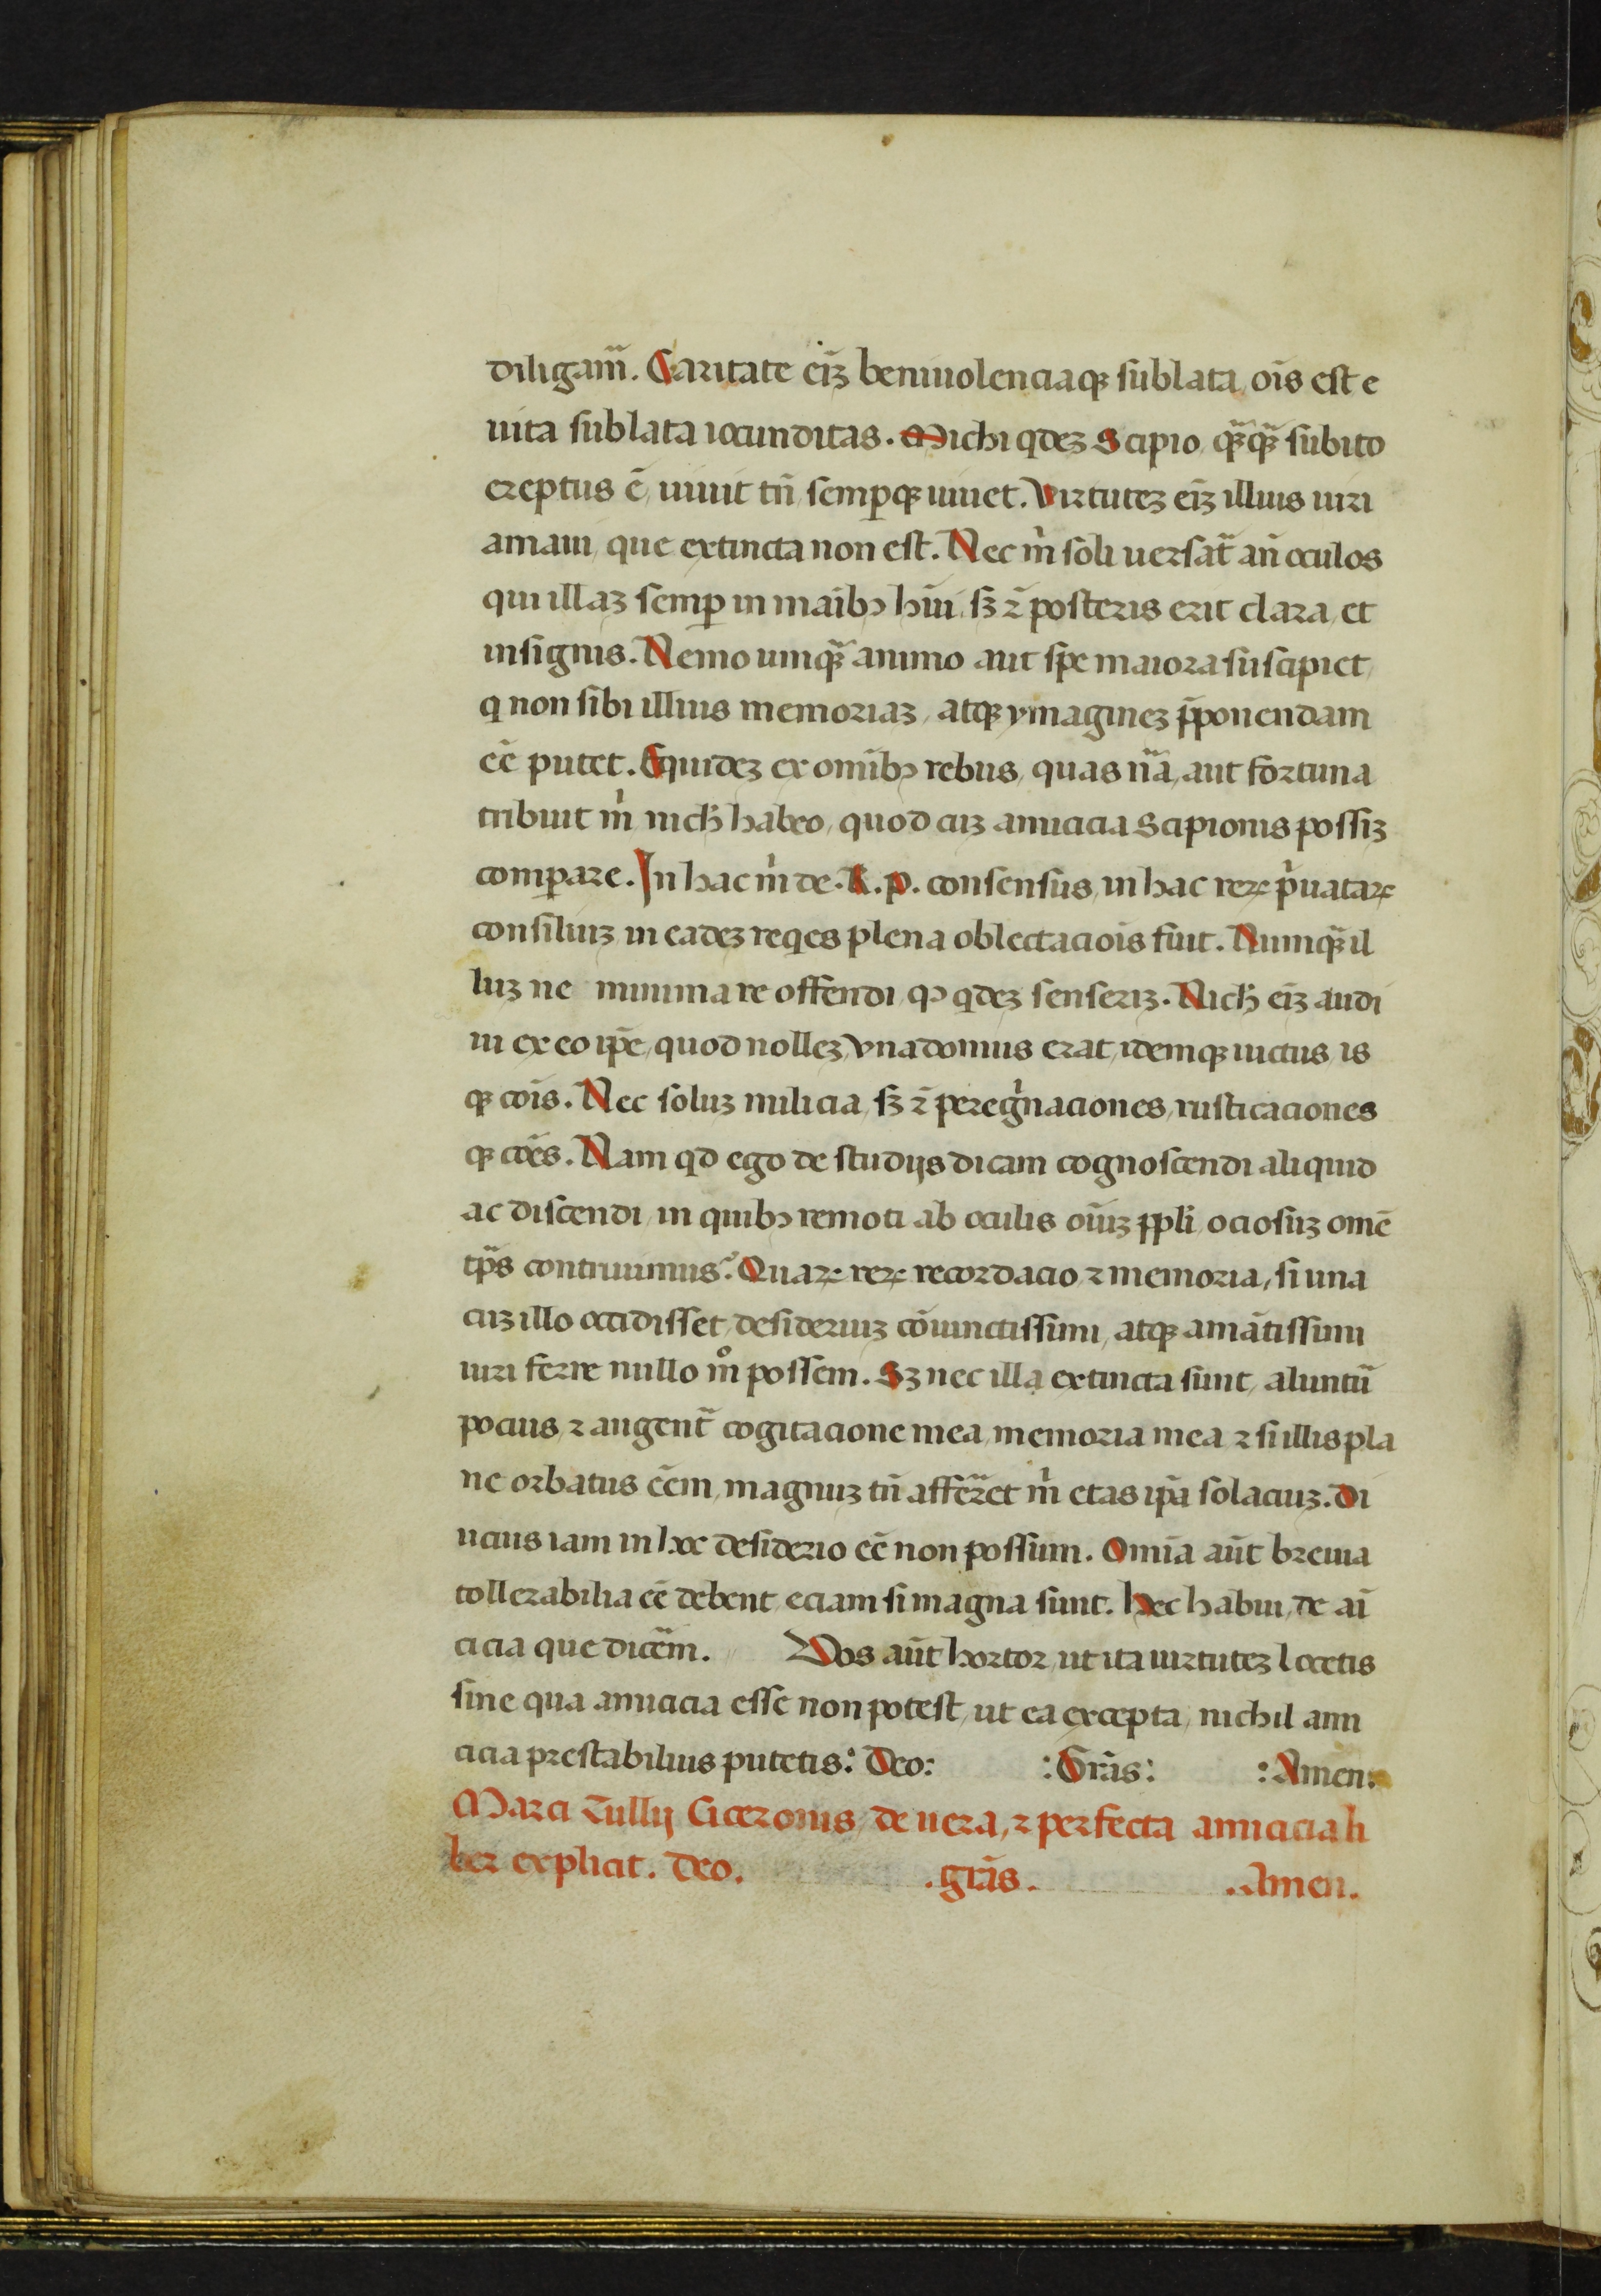 diligam̃. Caritate eiȝ beniuolenciaqꝫ sublata, oĩs est e
uita sublata iocunditas. Michi qdeȝ Scipio, qꝫ̃qꝫ̃ subito
ereptus ẽ, uiuit tñ semp̱qꝫ uiuet. Virtuteȝ eĩȝ illius uiri
amaui, que extincta non est. Nec m̍ soli uersat᷑ añ oculos
qui illaȝ semp̱ in maĩbꝰ hũi, sȝ ⁊̃ posteris erit clara, et
insignis. Nemo umqꝫ̃ animo aut spe maiora suscipiet,
q non sibi illius memoriaȝ, atqꝫ ymagineȝ p̱ponendam
eẽ putet. Equideȝ ex omĩbꝰ rebus, quas nã, aut fortuna
tribuit m̍ nich̃ habeo, quod cuȝ amicicia Scipionis possiȝ
comp̱are. In hac m̍ de .R.p. consensus, in hac reꝝ p̍uataꝝ
consiliuȝ in eadeȝ reqes plena oblectaciois fuit. Numqꝫ̃ il
luȝ ne minima re offendi, qꝰ qdeȝ senseriȝ. Nich̃ eĩȝ audi
ui ex eo ip̃e, quod nolleȝ, vna domus erat, idemqꝫ uictus, is
qꝫ cõis. Nec soluȝ milicia, sȝ ⁊̃ peregͥnaciones, rusticaciones
qꝫ cões. Nam qd ego de studijs dicam cognoscendi aliquid
ac discendi, in quibꝰ remoti ab oculis oĩuȝ p̱pli, ociosuȝ omẽ
tp̃s contriuimus? Quaꝝ reꝝ recordacio ⁊ memoria, si una
cuȝ illo occidisset, desideriuȝ cõiunctissimi, atqꝫ amãtissimi
uiri ferre nullo m̊ possem. Sȝ nec illa extincta sunt, aluntũ
pocius, ⁊ augent᷑ cogitacione mea, memoria mea ⁊ si illis pla
ne orbatus eẽm, magnuȝ tñ affer̃et m̍ etas ip̃a solaciuȝ. Di
ucius iam in hoc desiderio eẽ non possum. Omĩa aũt breuia
tollerabilia eẽ debent, eciam si magna sunt. Hec habui, de ai
cicia que dicẽm. Vos aũt hortor, ut ita uirtuteȝ locetis
sine qua amicicia esse non potest, ut ea excepta, nichil ami
cicia prestabilius putetis: Deo: :Gr̃as: :Amen:
Marci Tullij Ciceronis, de uera, ⁊ perfecta amicicia li
ber explicit. Deo. .gr̃as. .Amen.